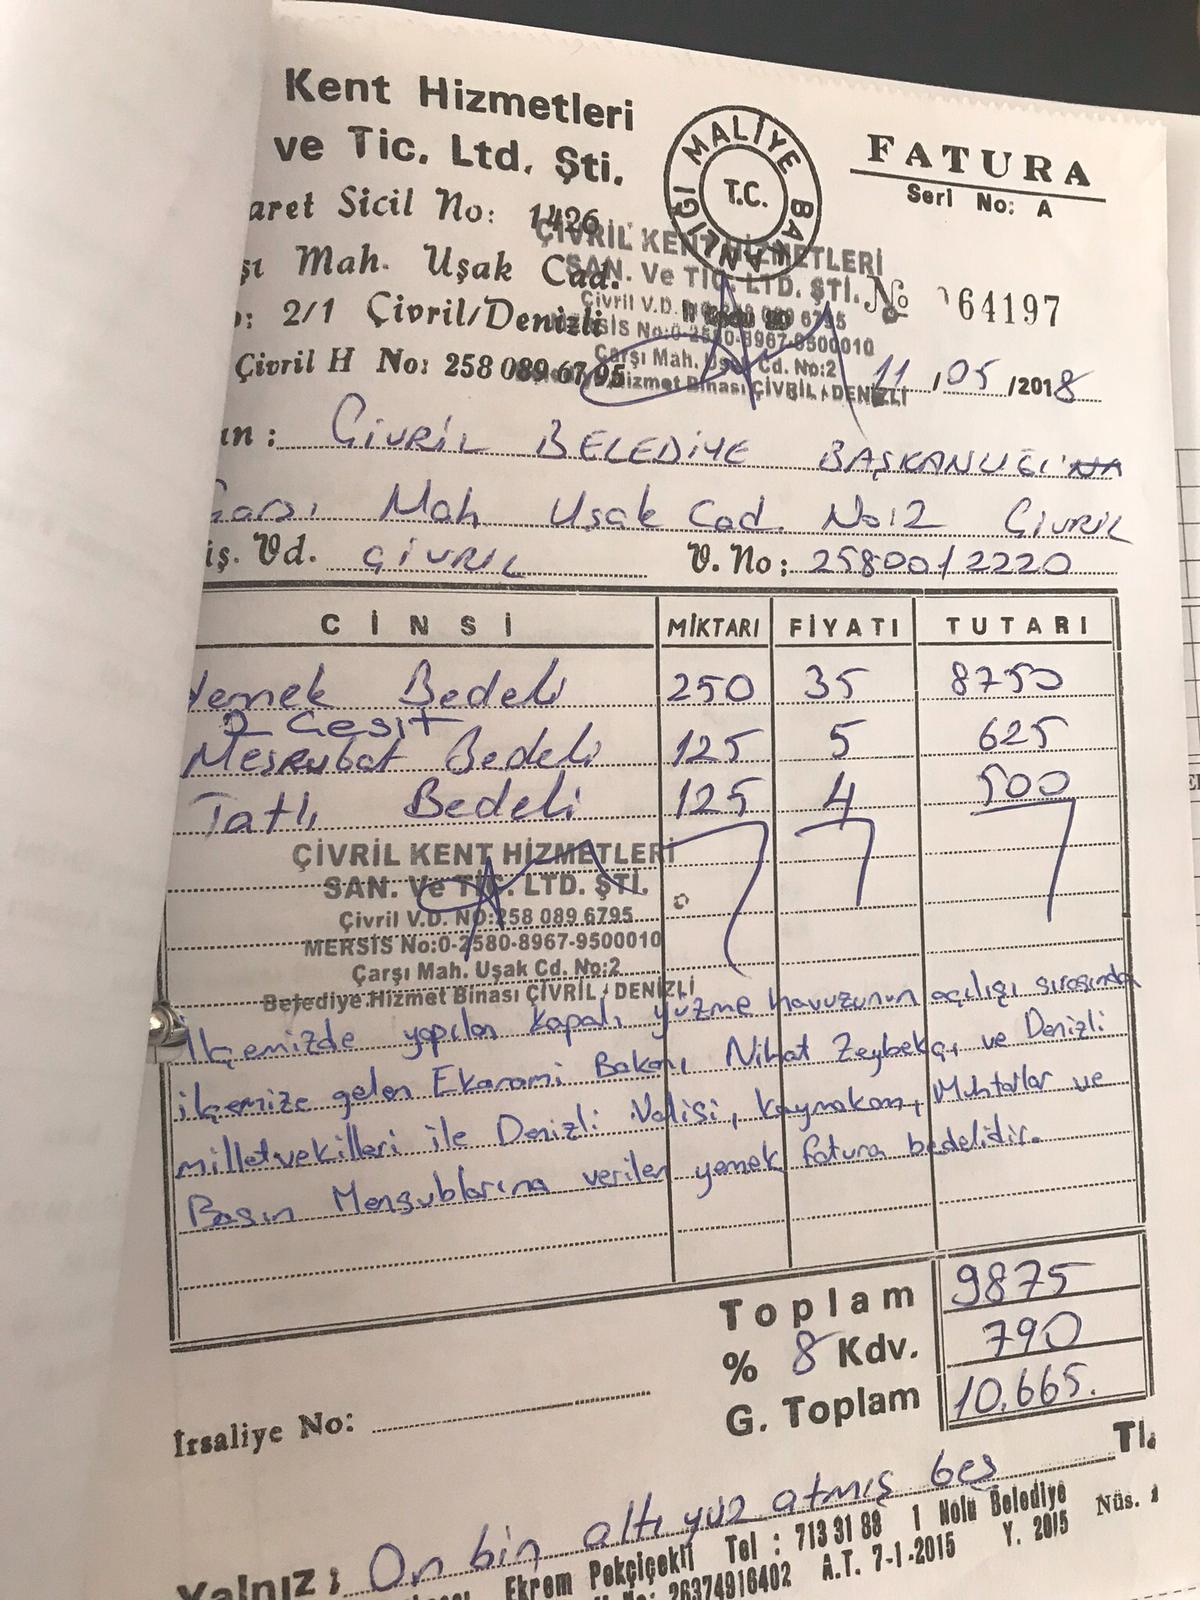 Kent Hizmetleri
ve Tic. Ltd. Şti.
FATURA
Seri No: A
T.C. MALİYE BAKANLIĞI
aret Sicil No: 1426
şı Mah. Uşak Cad.
o: 2/1 Çivril/Denizli
Çivril H No: 258 089 67 95
ÇİVRİL KENT HİZMETLERİ
SAN. Ve TİC. LTD. ŞTİ.
Çivril V.D. 6795
MERSİS No:0-2580-8967-9500010
Çarşı Mah. Uşak Cd. No:2
Hizmet Binası ÇİVRİL - DENİZLİ
No 64197
11/05/2018
ın: ÇİVRİL BELEDİYE BAŞKANLIĞI'NA
Çarşı Mah Uşak Cad. No:2 Çivril
iş. Vd. ÇİVRİL V. No: 2580012220
CİNSİ MİKTARI FİYATI TUTARI
Yemek Bedeli 250 35 8750
2 Çeşit
Meşrubat Bedeli 125 5 625
Tatlı Bedeli 125 4 500
ÇİVRİL KENT HİZMETLERİ
SAN. Ve TİC. LTD. ŞTİ.
Çivril V.D. NO:258 089 6795
MERSİS No:0-2580-8967-9500010
Çarşı Mah. Uşak Cd. No:2
Belediye Hizmet Binası ÇİVRİL - DENİZLİ
İlçemizde yapılan kapalı yüzme havuzunun açılışı sırasında
ilçemize gelen Ekonomi Bakanı Nihat Zeybekçi ve Denizli
milletvekilleri ile Denizli Valisi, Kaymakam, Muhtarlar ve
Basın Mensublarına verilen yemek fatura bedelidir.
Toplam 9875
% 8 Kdv. 790
G. Toplam 10.665.
İrsaliye No:
TL.
Yalnız: On bin altı yüz atmış beş
Ekrem Pekçiçekli Tel : 713 31 88 1 Nolu Belediye Nüs. 1
No: 26374916402 A.T. 7-1-2015 Y. 2015